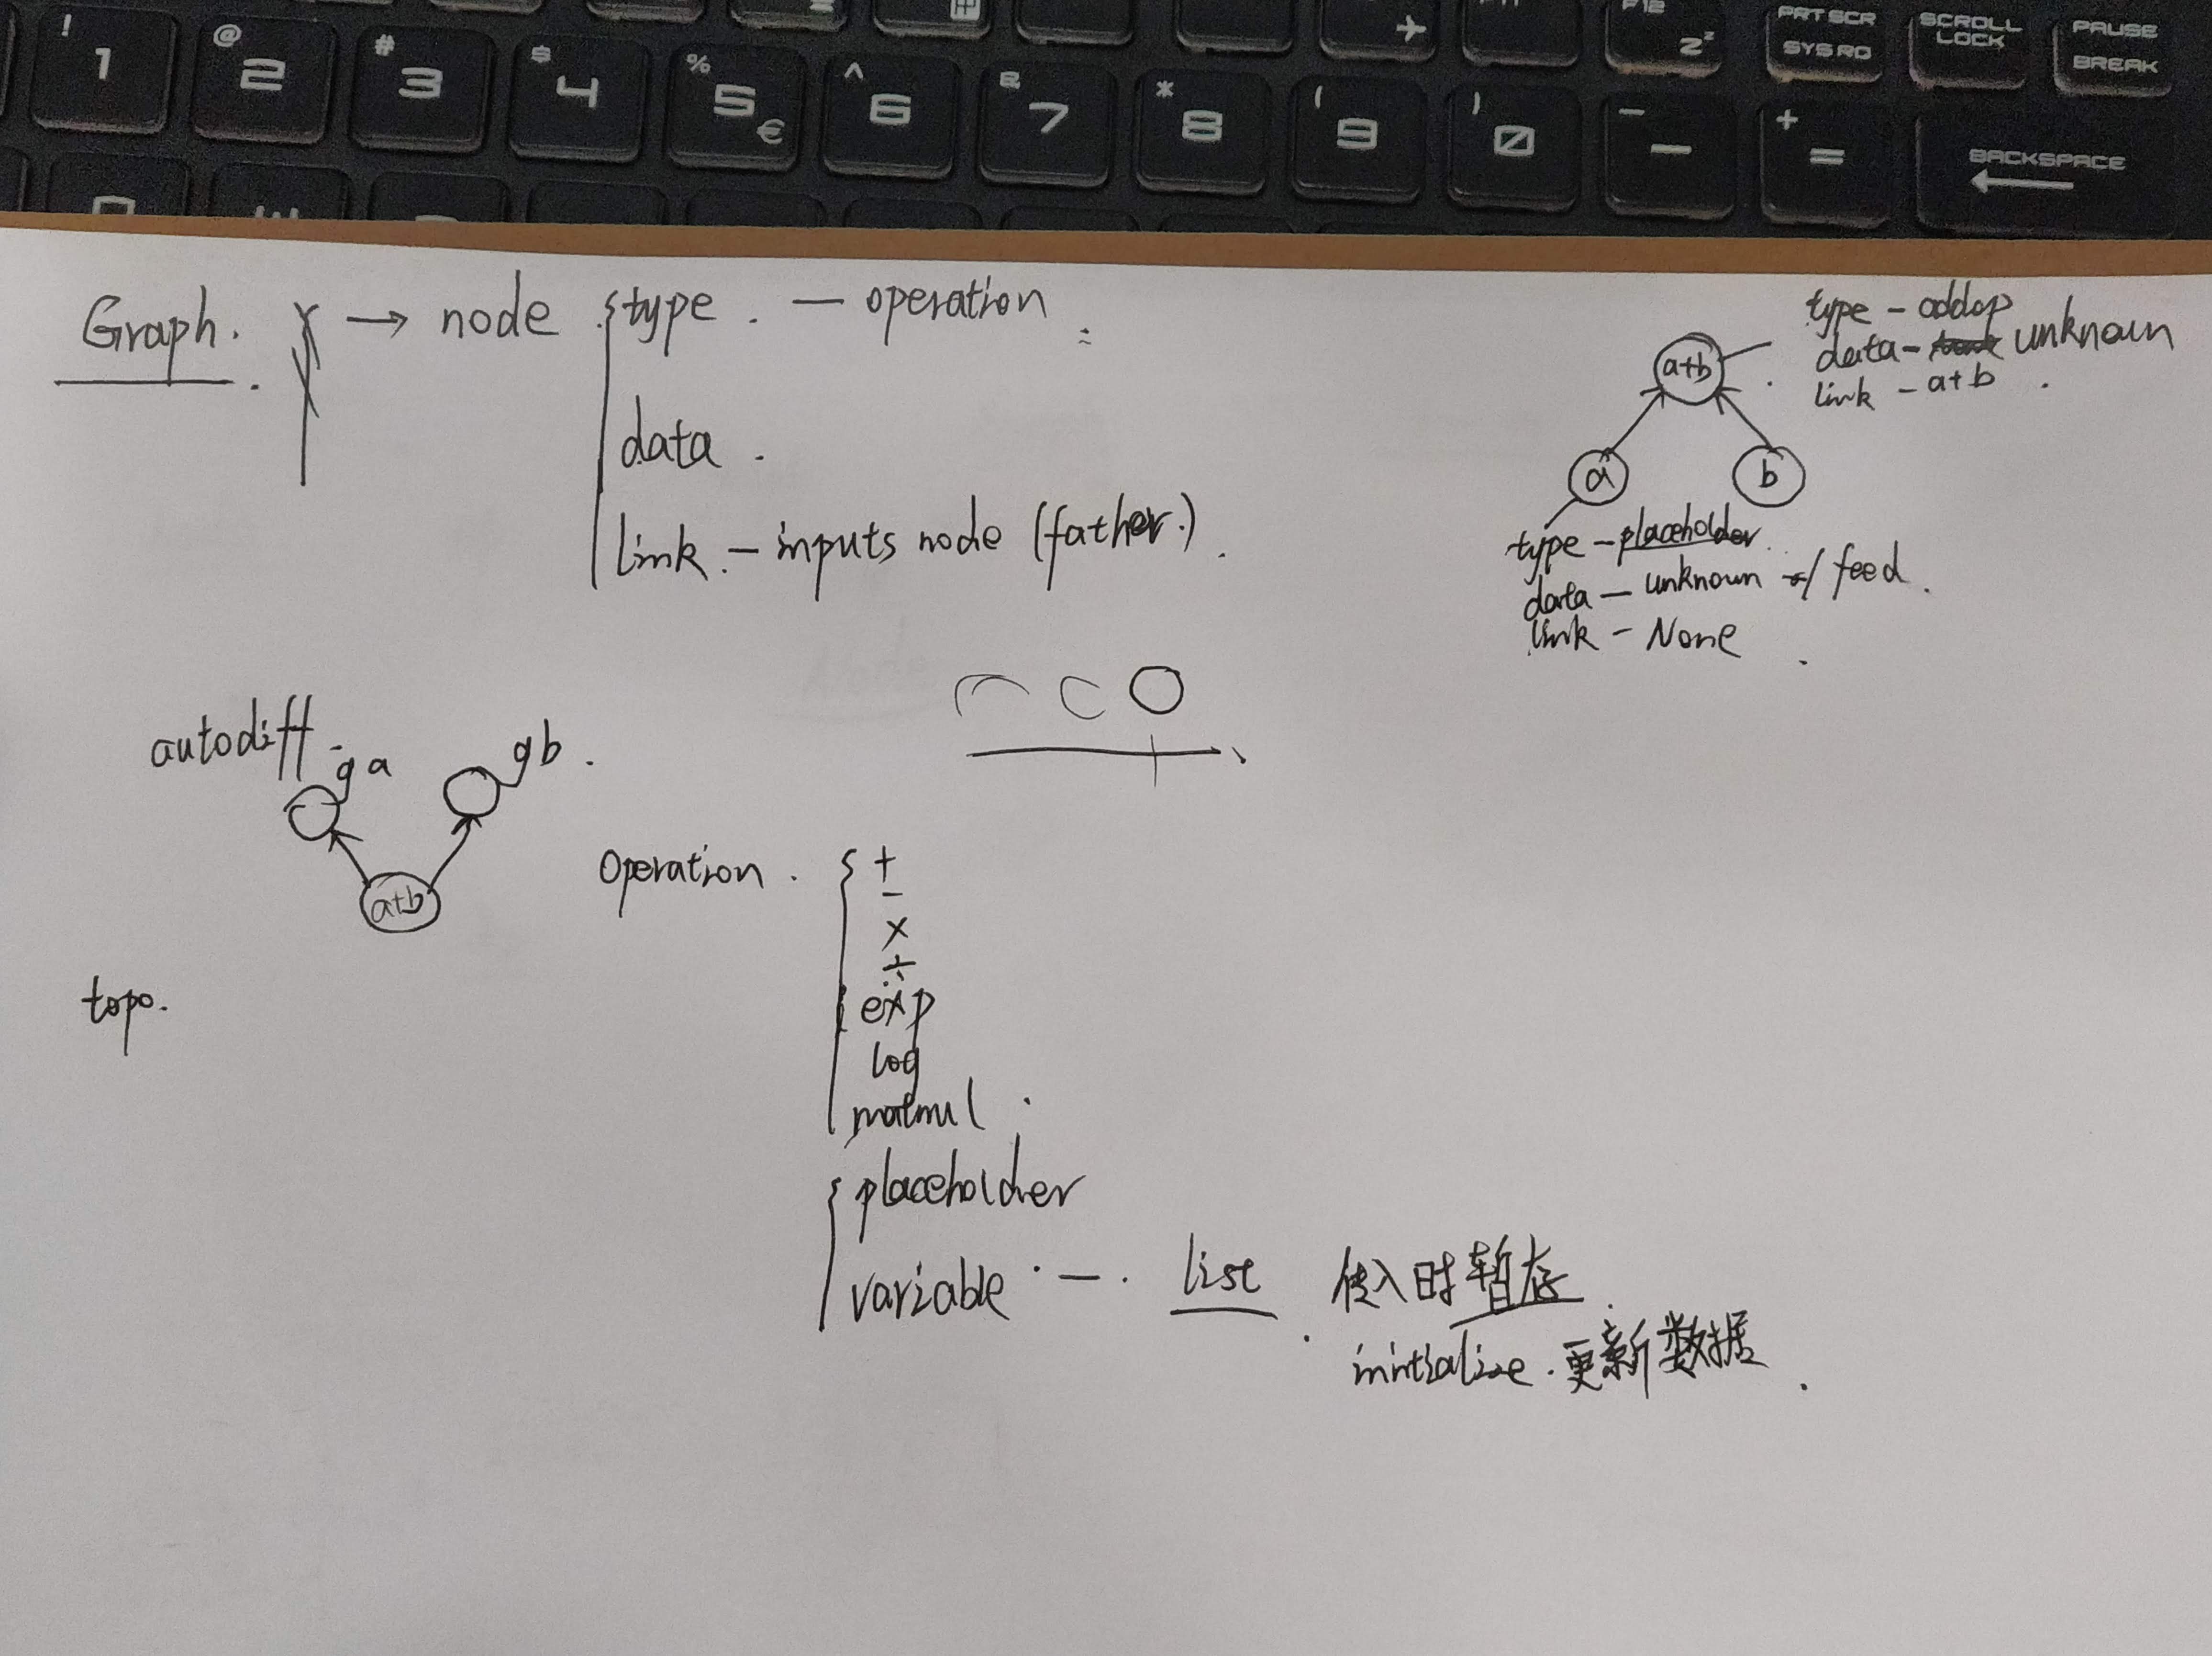 ! 1 @ 2 # 3 $ 4 % 5 € ^ 6 & 7 * 8 ( 9 ) 0 - — + =
F12 Z
PRT SCR SYS RQ
SCROLL LOCK
PAUSE BREAK
BACKSPACE
Graph. → node { type. — operation
data.
link. — inputs node (father.).
a+b
type - addop
data - unknown
link - a+b
a b
type - placeholder
data — unknown / feed.
link - None
autodiff
ga gb.
a+b
topo.
Operation. { +
-
×
÷
exp
log
matmul
{ placeholder
variable — list 传入时暂存
initialize. 更新数据